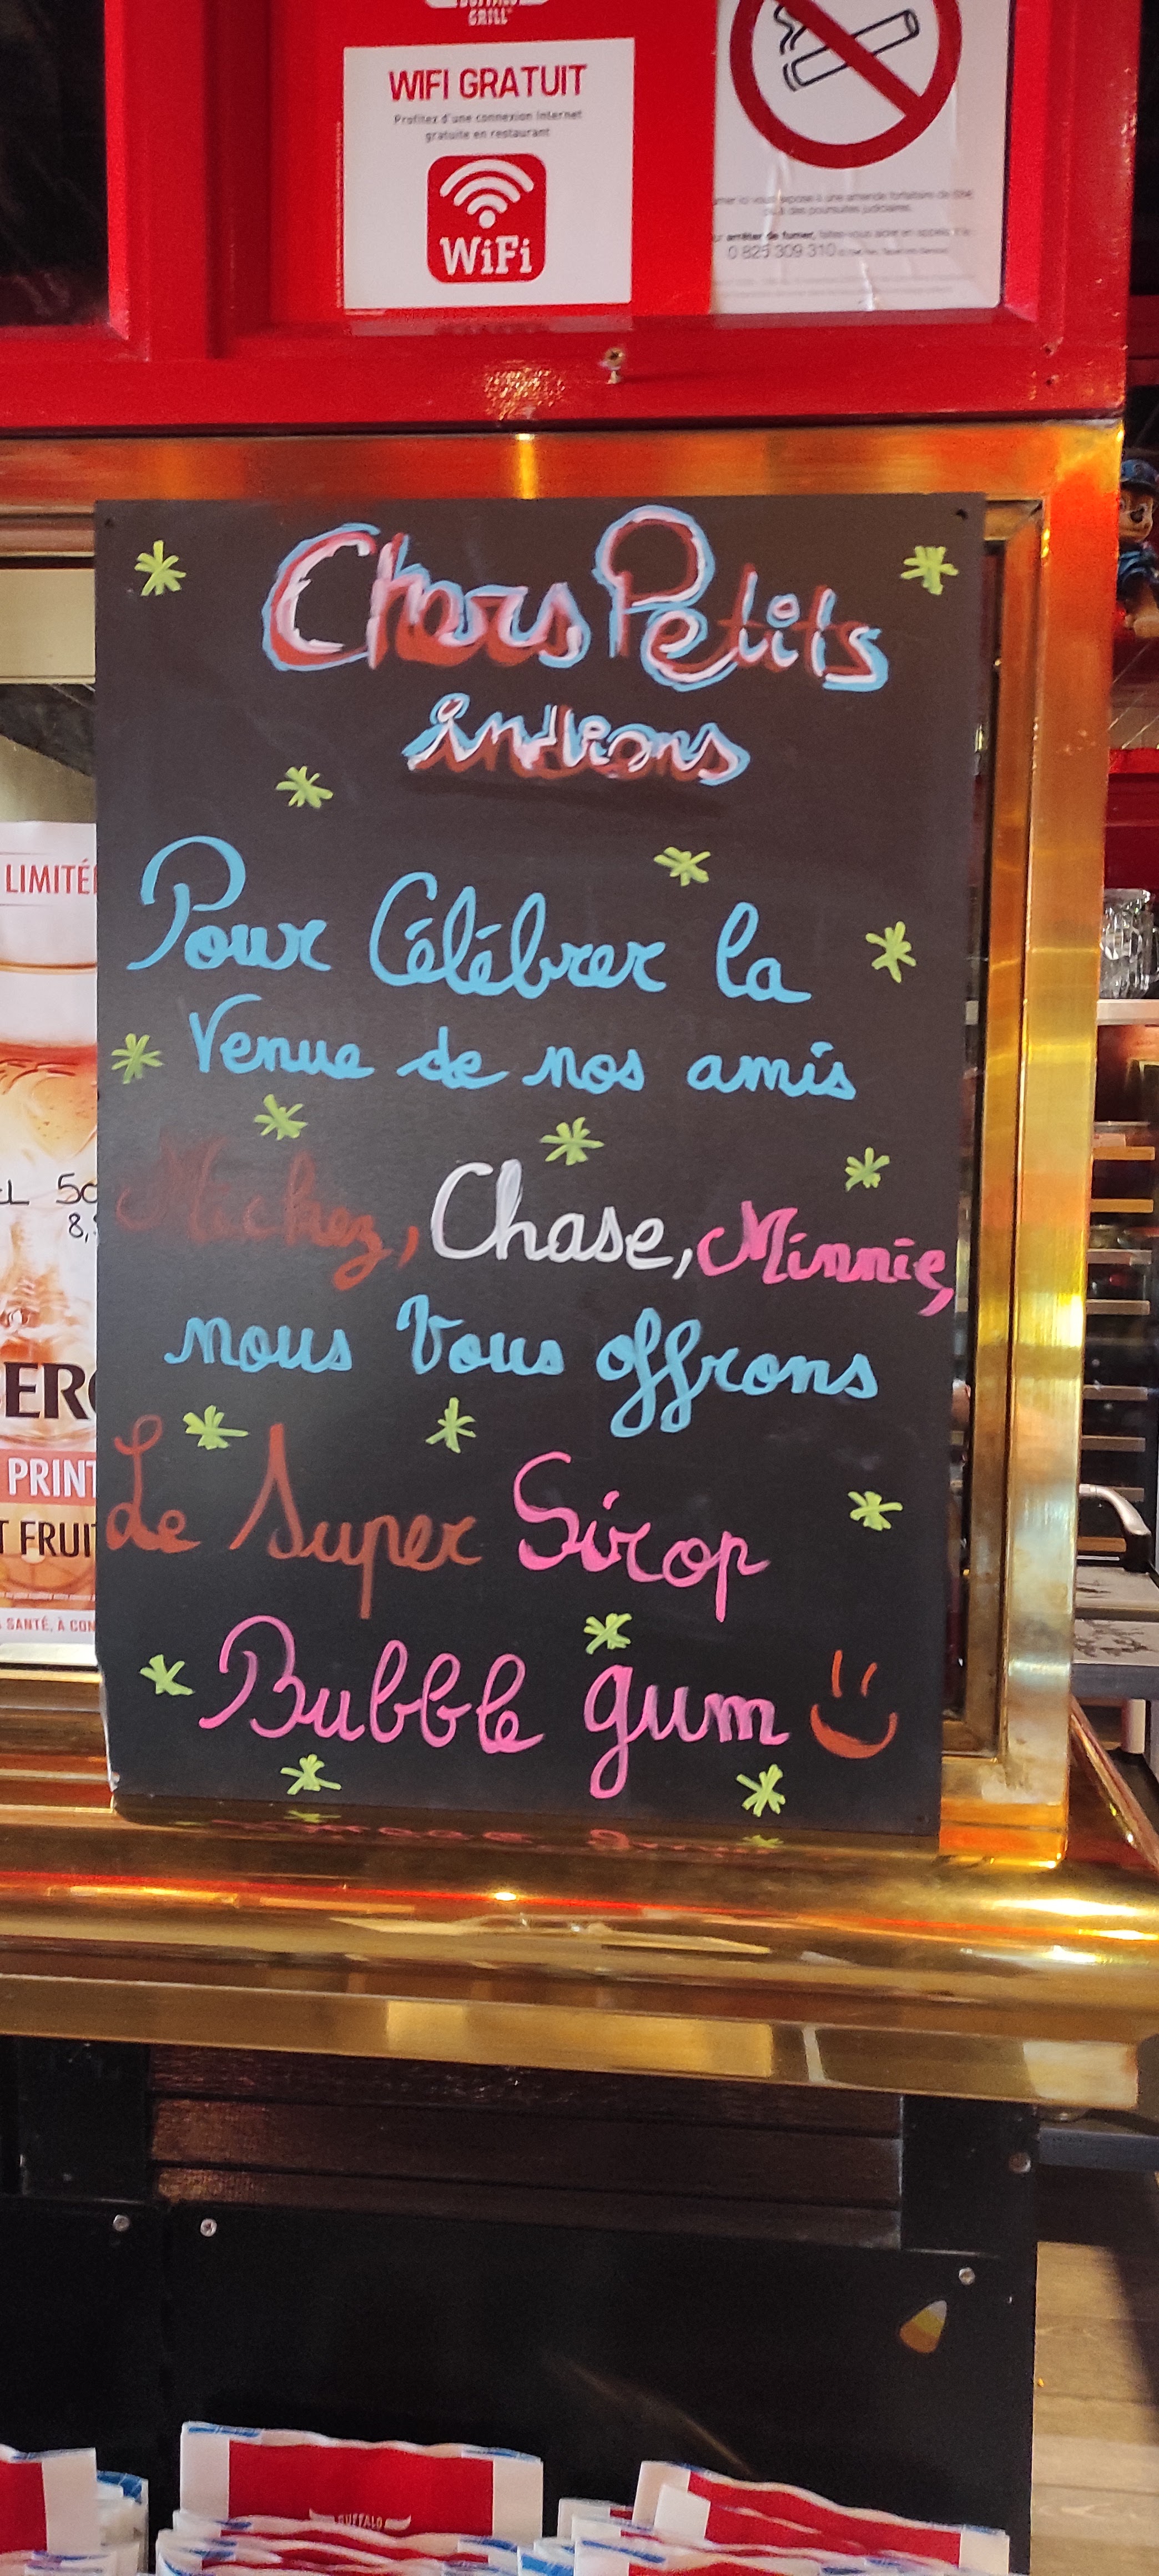 BUFFALO
GRILL
WIFI GRATUIT
Profitez d'une connexion internet
gratuite en restaurant
WiFi
arrêter de fumer,
0 825 309 310
Chers Petits
indiens
Pour Célébrer la
Venue de nos amis
Mickey, Chase, Minnie,
nous Vous offrons
Le Super Sirop
Bubble gum
LIMITÉ
50
8,
BERG
PRINT
T FRUIT
SANTÉ, À CON
BUFFALO